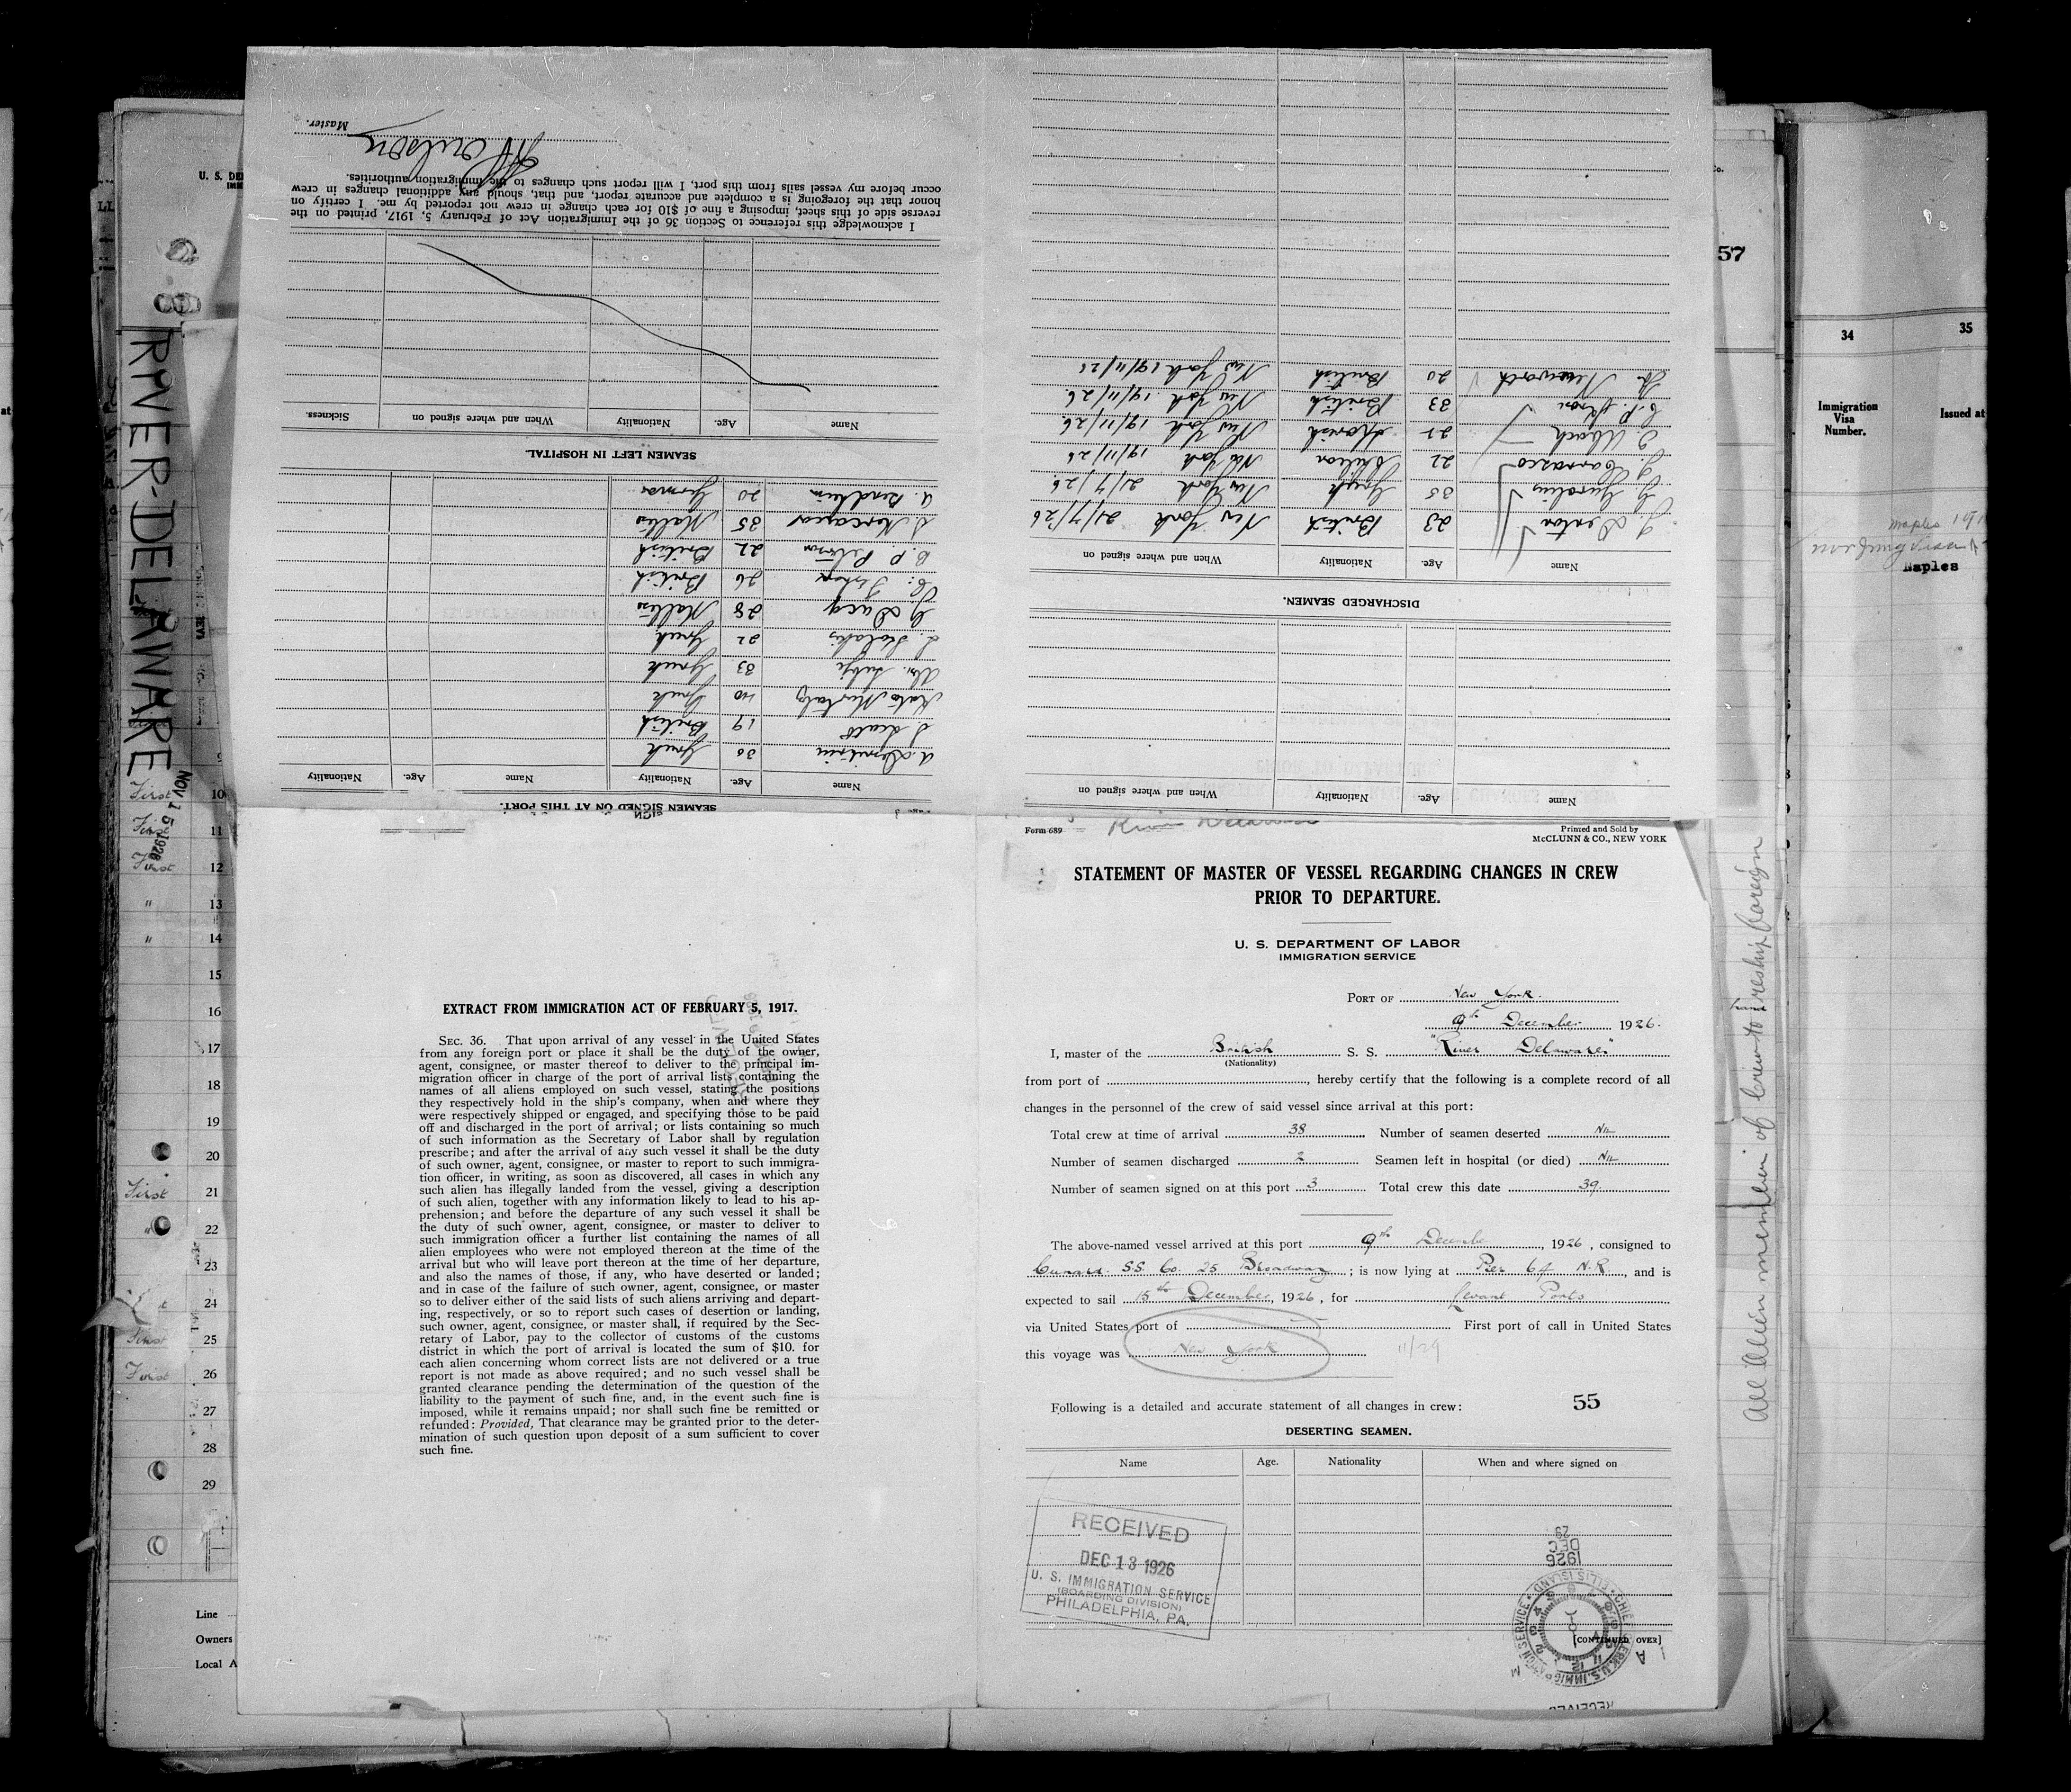 Form 689
Printed and Sold by
McCLUNN & CO., NEW YORK
STATEMENT OF MASTER OF VESSEL REGARDING CHANGES IN CREW
PRIOR TO DEPARTURE.
U. S. DEPARTMENT OF LABOR
IMMIGRATION SERVICE
PORT OF New York.
9th December 1926.
I, master of the British S. S. "River Delaware"
(Nationality)
from port of , hereby certify that the following is a complete record of all
changes in the personnel of the crew of said vessel since arrival at this port:
Total crew at time of arrival 38 Number of seamen deserted NIL
Number of seamen discharged 2 Seamen left in hospital (or died) NIL
Number of seamen signed on at this port 3 Total crew this date 39
The above-named vessel arrived at this port 9th December, 1926, consigned to
Cunard S.S. Co. 25 Broadway; is now lying at Pier 64 N.R., and is
expected to sail 15th December, 1926, for Levant Ports
via United States port of First port of call in United States
this voyage was New York 11/29
55
Following is a detailed and accurate statement of all changes in crew:
DESERTING SEAMEN.
Name Age. Nationality When and where signed on
RECEIVED
DEC 13 1926
U. S. IMMIGRATION SERVICE
(BOARDING DIVISION)
PHILADELPHIA, PA.
29
DEC
1926
[CONTINUED OVER]
EXTRACT FROM IMMIGRATION ACT OF FEBRUARY 5, 1917.
SEC. 36. That upon arrival of any vessel in the United States
from any foreign port or place it shall be the duty of the owner,
agent, consignee, or master thereof to deliver to the principal im-
migration officer in charge of the port of arrival lists containing the
names of all aliens employed on such vessel, stating the positions
they respectively hold in the ship's company, when and where they
were respectively shipped or engaged, and specifying those to be paid
off and discharged in the port of arrival; or lists containing so much
of such information as the Secretary of Labor shall by regulation
prescribe; and after the arrival of any such vessel it shall be the duty
of such owner, agent, consignee, or master to report to such immigra-
tion officer, in writing, as soon as discovered, all cases in which any
such alien has illegally landed from the vessel, giving a description
of such alien, together with any information likely to lead to his ap-
prehension; and before the departure of any such vessel it shall be
the duty of such owner, agent, consignee, or master to deliver to
such immigration officer a further list containing the names of all
alien employees who were not employed thereon at the time of the
arrival but who will leave port thereon at the time of her departure,
and also the names of those, if any, who have deserted or landed;
and in case of the failure of such owner, agent, consignee, or master
so to deliver either of the said lists of such aliens arriving and depart-
ing, respectively, or so to report such cases of desertion or landing,
such owner, agent, consignee, or master shall, if required by the Sec-
retary of Labor, pay to the collector of customs of the customs
district in which the port of arrival is located the sum of $10. for
each alien concerning whom correct lists are not delivered or a true
report is not made as above required; and no such vessel shall be
granted clearance pending the determination of the question of the
liability to the payment of such fine, and, in the event such fine is
imposed, while it remains unpaid; nor shall such fine be remitted or
refunded: Provided, That clearance may be granted prior to the deter-
mination of such question upon deposit of a sum sufficient to cover
such fine.
Name Age. Nationality When and where signed on
DISCHARGED SEAMEN.
Name Age. Nationality When and where signed on
J. Denton 23 British New York 21/7/26
35 Greek New York 21/7/26
J. Carrasco 22 Chilian New York 19/11/26
Spanish New York 19/11/26
33 British New York 19/11/26
20 British New York 19/11/26
SEAMEN SIGNED ON AT THIS PORT.
Name Age. Nationality Name Age. Nationality
30 Greek
19 British
40 Greek
33 Greek
22 Greek
28 Maltese
26 British
22 British
35 Maltese
20 German
SEAMEN LEFT IN HOSPITAL.
Name Age. Nationality When and where signed on Sickness.
I acknowledge this reference to Section 36 of the Immigration Act of February 5, 1917, printed on the
reverse side of this sheet, imposing a fine of $10 for each change in crew not reported by me. I certify on
honor that the foregoing is a complete and accurate report, and that, should any additional changes in crew
occur before my vessel sails from this port, I will report such changes to the immigration authorities.
Master.
RIVER-DELAWARE
NOV 15 1926
First 10
First 11
First 12
" 13
" 14
15
16
17
18
19
20
First 21
" 22
23
24
First 25
First 26
27
28
29
Line
Owners
Local A
57
34
35
Immigration
Visa
Number.
Issued at
Naples